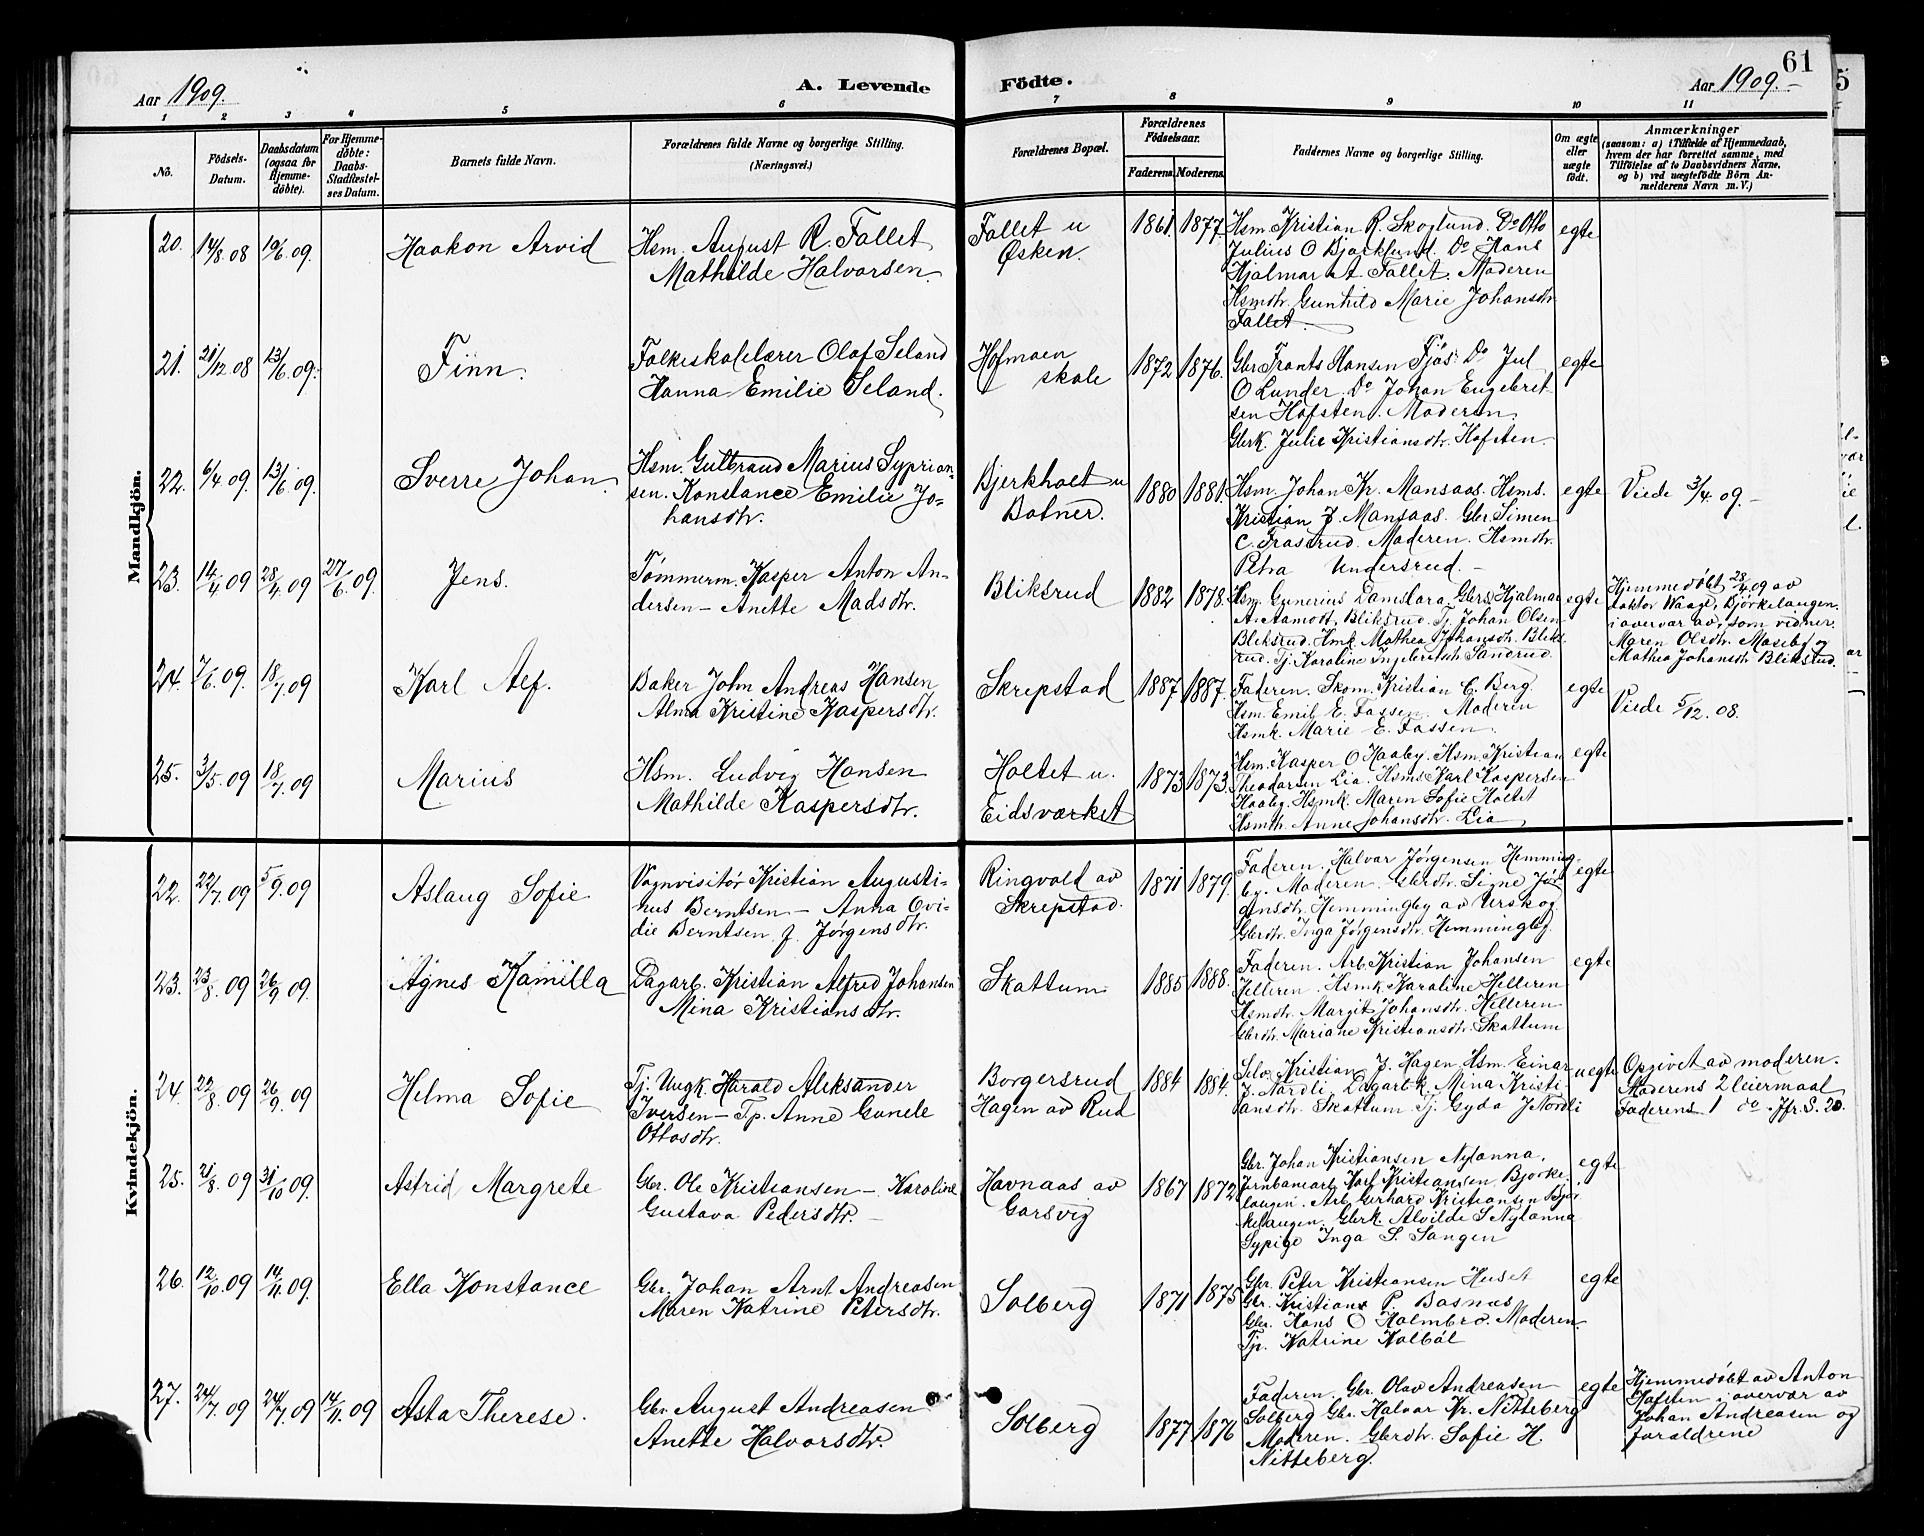 61
Aar 1909.
A. Levende Födte.
Aar 1909.
1 2 3 4 5 6 7 8 9 10 11
No.
Födsels-
Datum.
Daabsdatum
(ogsaa for
Hjemme-
döbte).
For Hjemme-
döbte:
Daabs
Stadfæstel-
ses Datum.
Barnets fulde Navn.
Forældrenes fulde Navne og borgerlige Stilling.
(Næringsvei.)
Forældrenes Bopæl.
Forældrenes
Födselsaar.
Faderens. Moderens.
Faddernes Navne og borgerlige Stilling.
Om ægte
eller
uægte
födt.
Anmærkninger
(saasom: a) i Tilfælde af Hjemmedaab,
hvem der har forrettet samme, med
Tilföielse af to Daabsvidners Navne,
og b) ved uægtefödte Börn An-
melderens Navn m. V.)
Mandkjön.
20. 14/8 08 10/6 09. Haakon Arvid
Hsm. August R. Fallet
Mathilde Halvorsen.
Fallet u
Øsken.
1861. 1877.
Hsm. Kristian R. Skoglund. Do Otto
Julius O Bjørklund. Do Hans
Hjalmar A. Fallet. Moderen
Hsmdtr. Gunhild Marie Johansdtr.
Fallet.
egte
21. 21/12 08 13/6 09. Finn.
Folkeskolelærer Olaf Seland
Hanna Emilie Seland.
Hofmoen
skole
1872 1876.
Gbr. Frants Hansen Tjøs. Do Jul
O Lunder. Do Johan Engebret-
sen Hofsten. Moderen.
Gbrk. Julie Kristiansdtr. Hofsten.
egte
22. 6/4 09. 13/6 09. Sverre Johan.
Hsm. Gulbrand Marius Syprian-
sen. Konstance Emilie Jo-
hansdtr.
Bjerkholt u
Botner.
1880 1881.
Hsm. Johan Kr. Mansaas. Hsms.
Kristian J. Mansaas. Gbr. Simen
C. Frasdrud. Moderen. Hsmdtr.
Petra Undersrud.
egte
Viede 3/4 09.
23. 14/4 09 28/4 09 27/6 09. Jens.
Tømmerm. Kasper Anton An-
dersen - Anette Madsdtr.
Bliksrud
1882 1878.
Hsm. Gunerius Damslora, Gbrs. Hjalmar
A. Aamodt, Bliksrud. Tj. Johan Olsen
Bliksrud. Hmk. Mathea Johansdtr. Bliks-
rud. Tj. Karoline Ingebretsdtr Sandrud.
egte
Hjemmedøbt 28/4 09 av
doktor Waage, Bjørkelangen.
i overvær av, som vidner.
Maren Olsdtr. Maseby og
Mathea Johansdtr Bliksrud.
24. 7/6 09. 18/7 09 Karl Alf.
Baker John Andreas Hansen
Alma Kristine Kaspersdtr.
Skrepstad
1887 1887.
Faderen. Skom. Kristian C. Berg.
Hsm. Emil E. Fossen. Moderen
Hsmk. Marie E. Fossen.
egte
Viede 5/12. 08.
25. 3/5 09 18/7 09 Marius
Hsm. Ludvig Hansen
Mathilde Kaspersdtr.
Holtet u.
Eidsværket
1873 1873.
Hsm. Kasper O Haaby. Hsm. Kristian
Theodorsen Lia. Hsms Karl Kaspersen
Haaby. Hsmk. Maren Sofie Holtet
Hsmdtr. Anne Johansdtr. Lia
egte
Kvindekjön.
22. 22/7 09 5/9 09 Aslaug Sofie
Vognvisitør Kristian Augusti-
nus Berntsen - Anna Ovi-
die Berntsen f. Jørgensdtr.
Ringvold av
Skrepstad.
1871 1879.
Faderen. Halvor Jørgensen Hemming-
by. Moderen. Gbrdtr. Signe Jør-
gensdtr. Hemmingby av Urskog.
Gbrdtr. Inga Jørgensdtr. Hemmingby.
egte
23. 23/8 09 26/9 09. Agnes Kamilla
Dagarb. Kristian Alfred Johansen
Mina Kristiansdtr.
Skattum
1885 1888.
Faderen. Arb. Kristian Johansen
Helleren. Hsmk. Karoline Helleren
Hsmdtr. Margit Johansdtr. Helleren
Gbrdtr. Mariane Kristiansdtr. Skattum
egte
24. 22/8 09 26/9 09 Helma Sofie
Tj. Ungk. Harald Aleksander
Iversen - Tp. Anne Gunele
Ottosdtr.
Borgersrud
Hagen av Rud
1884 1884.
Selv. Kristian J. Hagen Hsm. Einar
J. Nordli, Dagarbk. Mina Kristi-
ansdtr. Skattum. Tj. Gyda J Nordli
uegte
Opgivet av moderen.
Moderens 2 leiermaal
Faderens 1 do. Jfr. S. 20.
25. 21/8 09 31/10 09. Astrid Margrete
Gbr. Ole Kristiansen - Karoline
Gustava Pedersdtr.
Havnaas av
Garsvig
1867 1872
Gbr. Johan Kristiansen Nylanna,
Jernbanearb. Karl Kristiansen. Bjørke-
langen. Arb. Gerhard Kristiansen Bjør-
kelangen. Gbrk. Alvilde S Nylanna
Sypige Inga S. Sangen
egte
26. 12/10 09 14/11 09. Ella Konstance
Gbr. Johan Arnt Andreasen
Maren Katrine Petersdtr.
Solberg
1871 1875
Gbr. Peter Kristiansen Huset
Gbr. Kristians P. Bosnæs
Gbr. Hans O Holmbro. Moderen.
Tp. Katrine Kolbøl
egte
27. 24/7 09 24/7 09 14/11 09 Asta Therese.
Gbr. August Andreasen
Anette Halvorsdtr.
Solberg
1877 1876
Faderen. Gbr. Olav Andreasen
Solberg Gbr. Halvor Kr. Nitteberg
Moderen. Gbrdtr. Sofie H.
Nitteberg.
egte
Hjemmedøbt av Anton
Hofsten i overvær av
Johan Andreasen og
forældrene